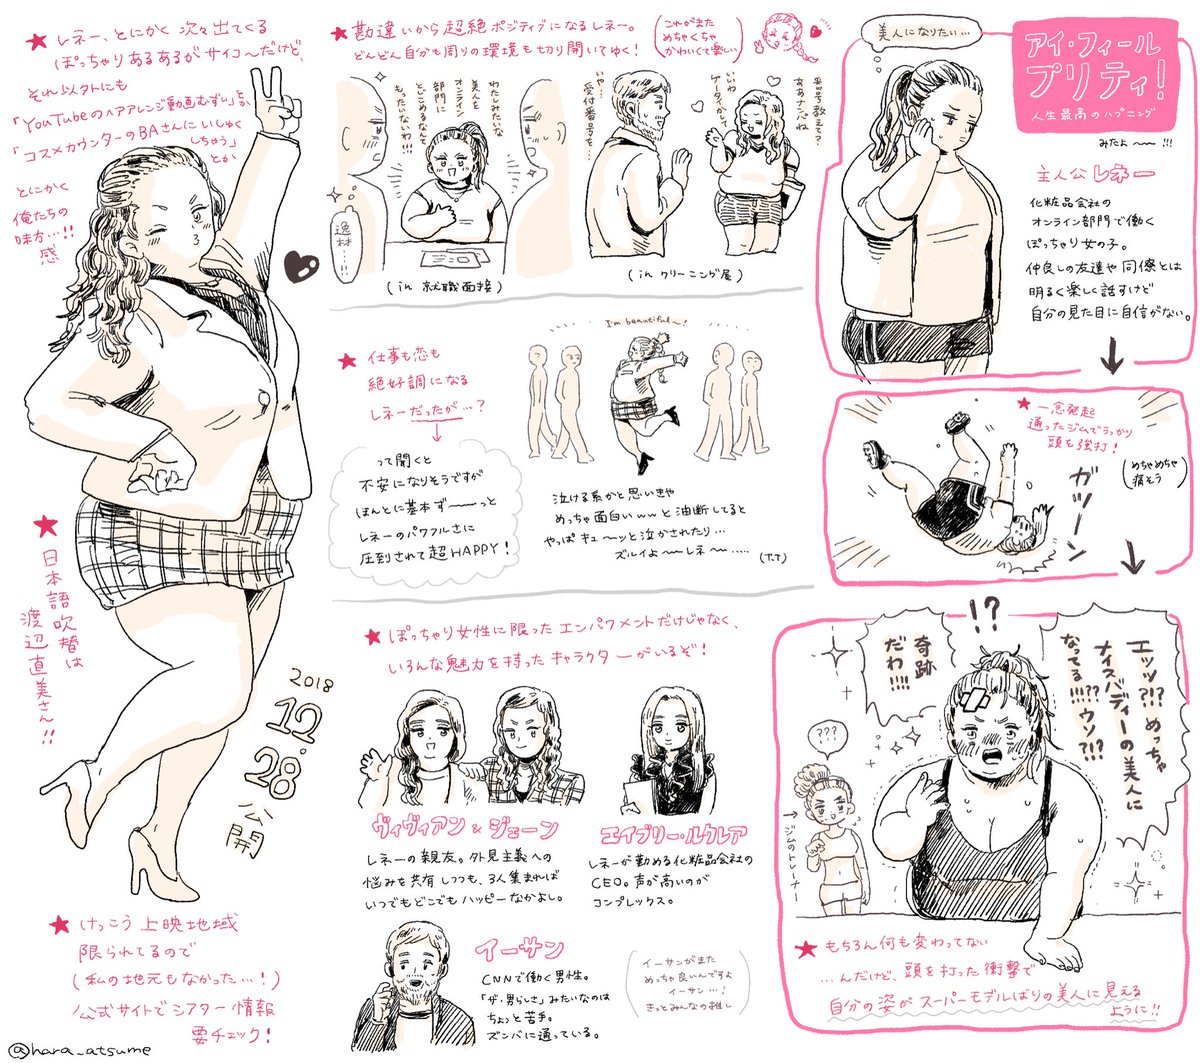 アイ・フィール
プリティ!
人生最高のハプニング
みたよ〜〜!!!
美人になりたい…
主人公レネー
化粧品会社の
オンライン部門で働く
ぽっちゃり女の子。
仲良しの友達や同僚とは
明るく楽しく話すけど
自分の見た目に自信がない。
★一念発起
通ったジムでうっかり
頭を強打!
ガツーン
(めちゃめちゃ
痛そう)
!?
エッッ?!?めっちゃ
ナイスバディーの美人に
なってる!!!??ウソ?!?
奇跡
だわ!!!!
???
→ジムのトレーナー
★もちろん何も変わってない
…んだけど、頭を打った衝撃で
自分の姿がスーパーモデルばりの美人に見える
ように!!
★勘違いから超絶ポジティブになるレネー。
どんどん自分も周りの環境も切り開いてゆく!
(これがまた
めちゃくちゃ
かわいくて楽しい)
わたしみたいな
美人を
オンライン
部門に
とどめるなんて
もったいないわ!!!
逸材…!!
(in 就職面接)
番号教えて?
ああナンパね
いいわ
ケータイかして
いや…
受付番号を…
(in クリーニング屋)
★仕事も恋も
絶好調になる
レネーだったが…?
って聞くと
不安になりそうですが
ほんとに基本ず〜〜っと
レネーのパワフルさに
圧到されて超HAPPY!
I'm beautiful〜!
泣ける系かと思いきや
めっちゃ面白いwwと油断してると
やっぱキュ〜ッと泣かされたり…
ズルイよ〜〜レネ〜……
(T.T)
★ぽっちゃり女性に限ったエンパワメントだけじゃなく、
いろんな魅力を持ったキャラクターがいるぞ!
ヴィヴィアン&ジェーン
レネーの親友。外見主義への
悩みを共有しつつも、3人集まれば
いつでもどこでもハッピーなかよし。
エイブリー・ルクレア
レネーが勤める化粧品会社の
CEO。声が高いのが
コンプレックス。
イーサン
CNNで働く男性。
「ザ・男らしさ」みたいなのは
ちょっと苦手。
ズンバに通っている。
(イーサンがまた
めっちゃ良いんですよ
イーサン…!
きっとみんなの推し)
★レネー、とにかく次々出てくる
ぽっちゃりあるあるがサイコ〜だけど、
それ以外にも
「YouTubeのヘアアレンジ動画むずい」とか
「コスメカウンターのBAさんにいしゅく
しちゃう」
とか
とにかく
俺たちの
味方…!!
感
★日本語吹替は
渡辺直美さん!!
2018
12.28
公開
★けっこう上映地域
限られてるので
(私の地元もなかった…!)
公式サイトでシアター情報
要チェック!
@hara_atsume